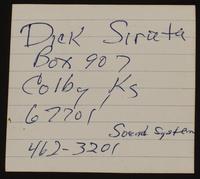 Dick Siruta
Box 907
Colby Ks
67701
Sound System
462-3201